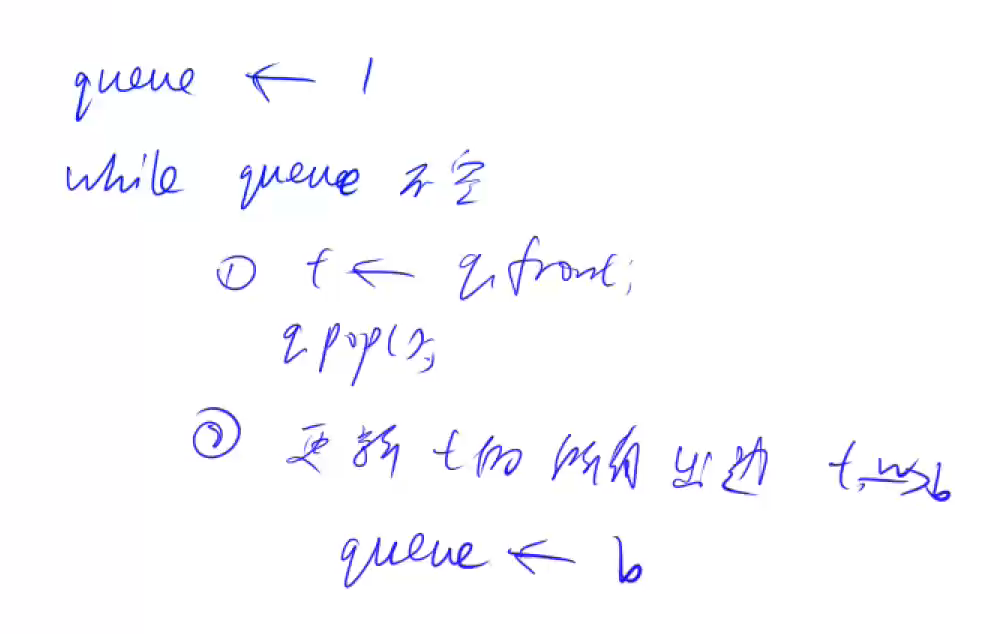 queue ← 1
while queue 不空
① t ← q.front;
q.pop();
② 更新 t的 所有 出边 t —w→ b
queue ← b